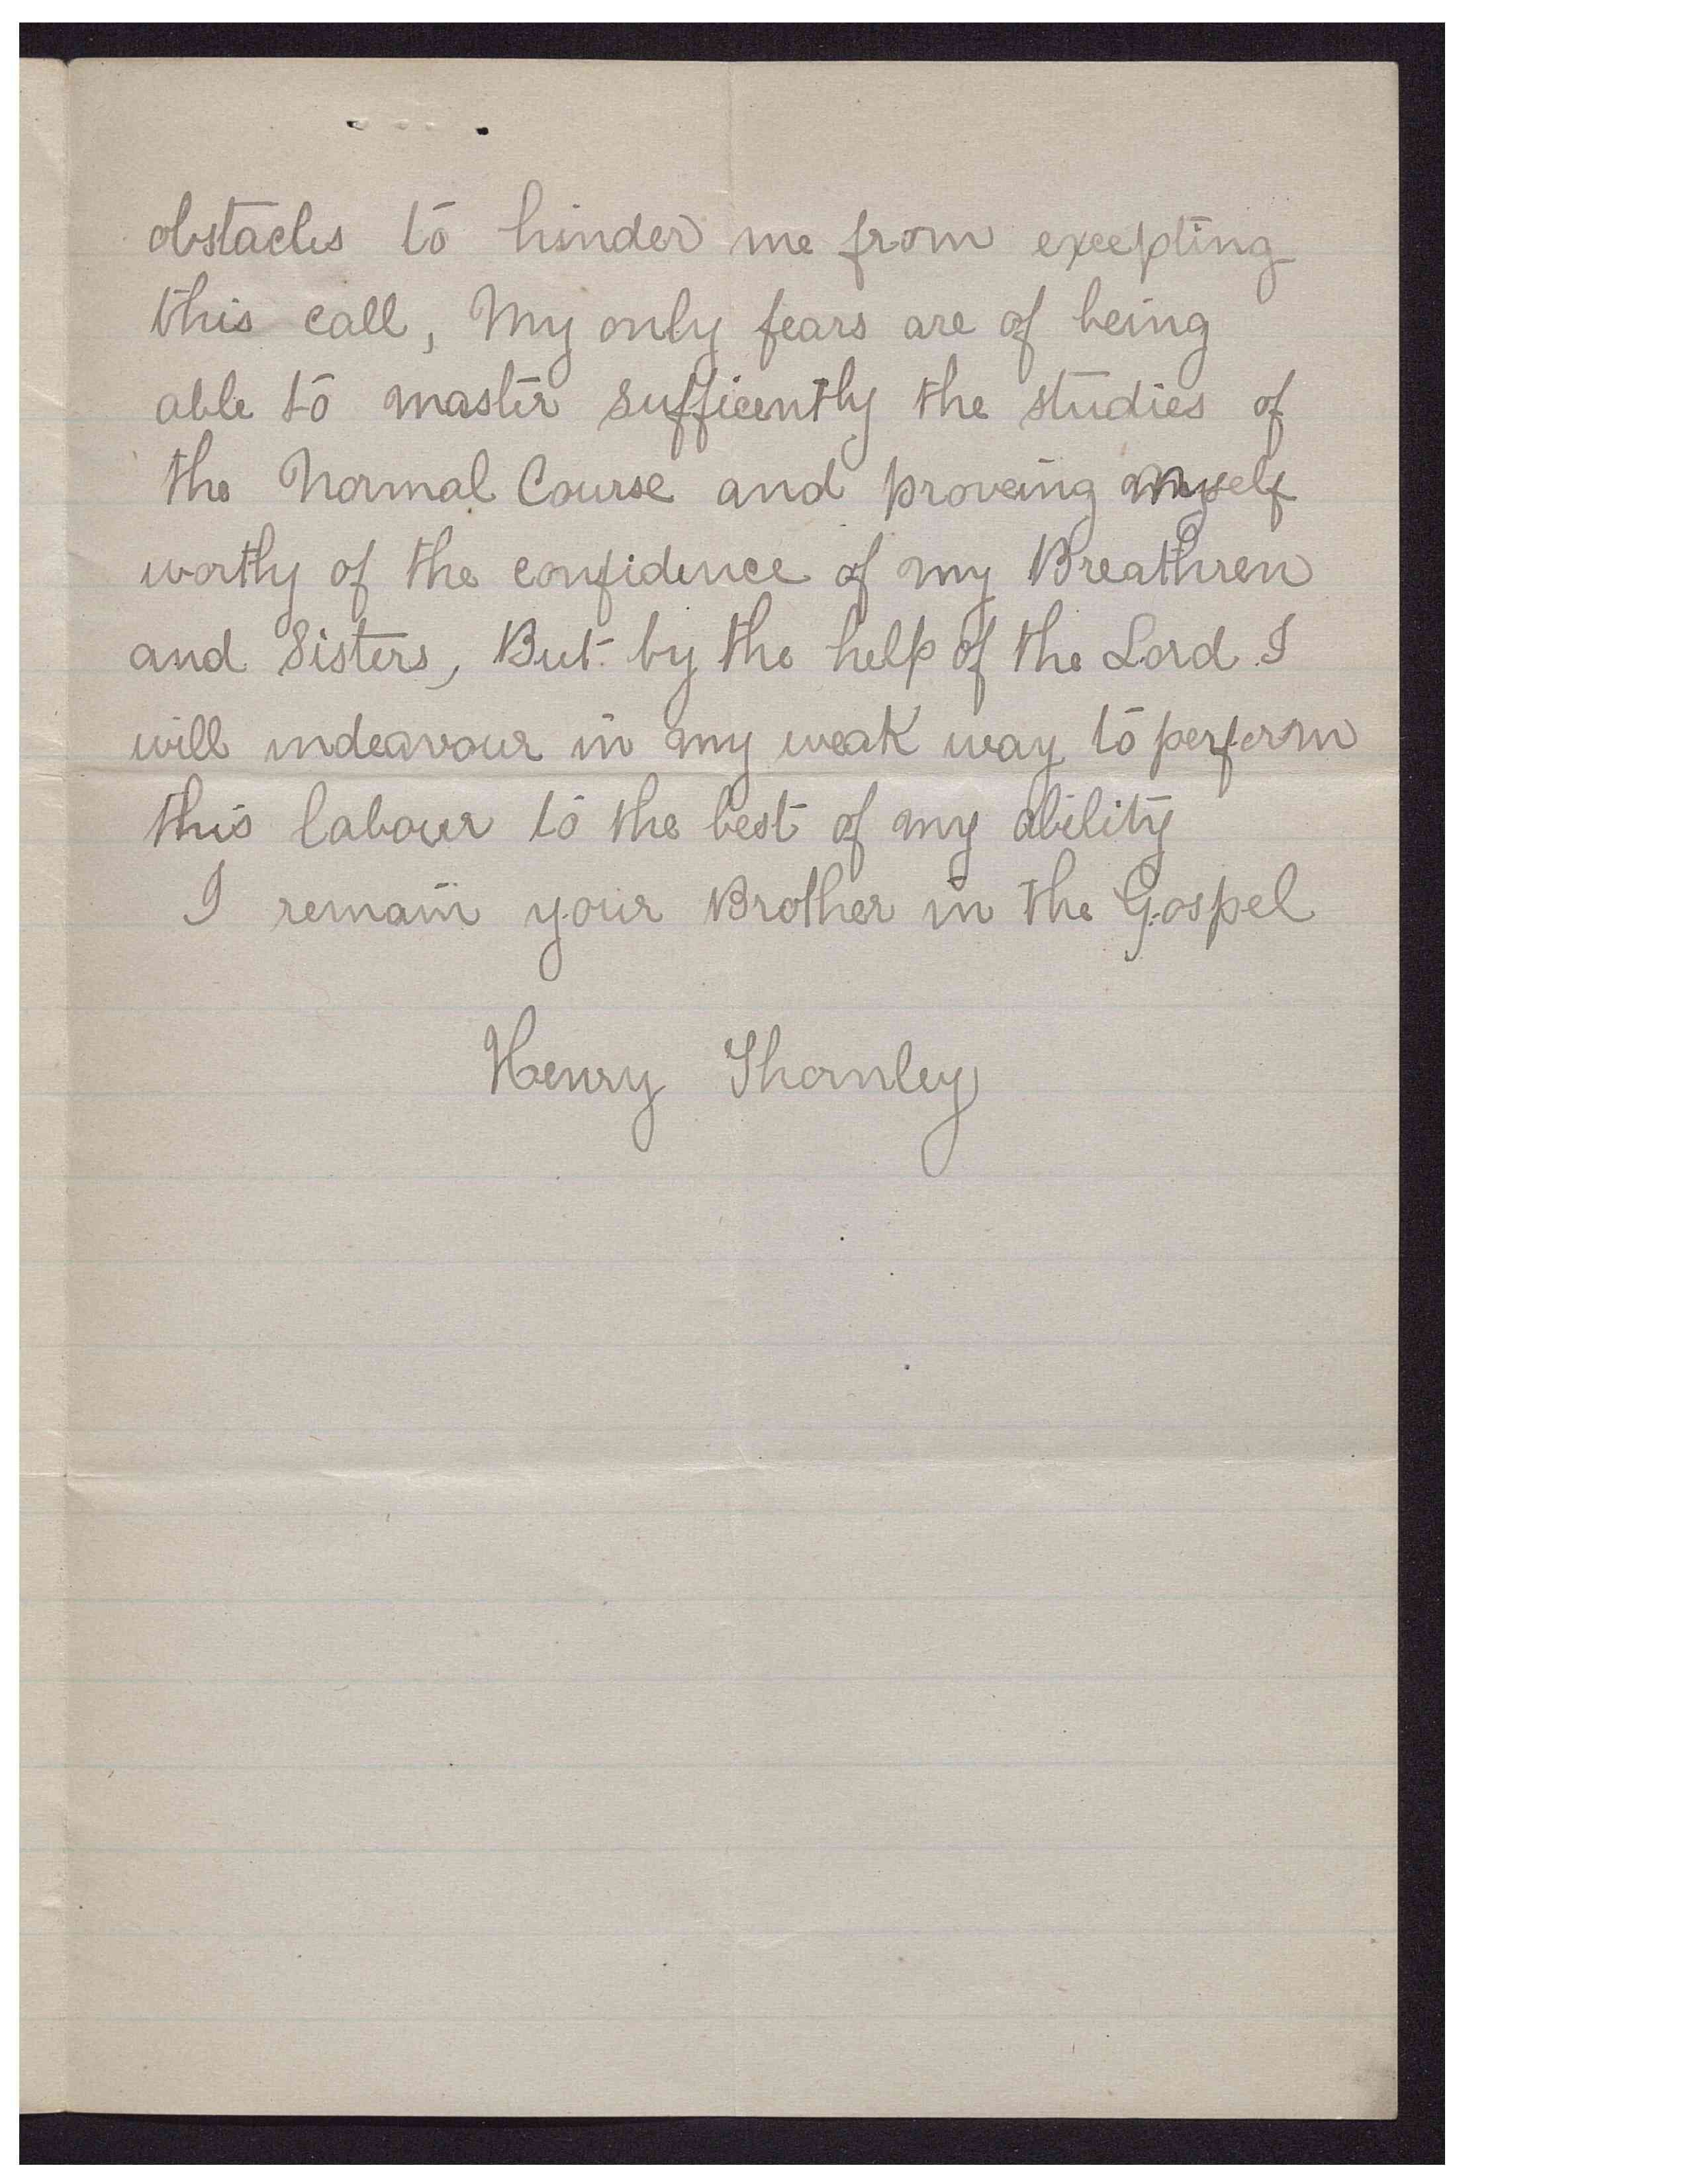 obstacles to hinder me from excepting
this call, My only fears are of being
able to master sufficently the studies of
the Normal Course and proveing myself
worthy of the confidence of my Breathren
and Sisters, But by the help of the Lord I
will indeavour in my weak way to perform
this labour to the best of my ability
I remain your Brother in the Gospel
Henry Thornley